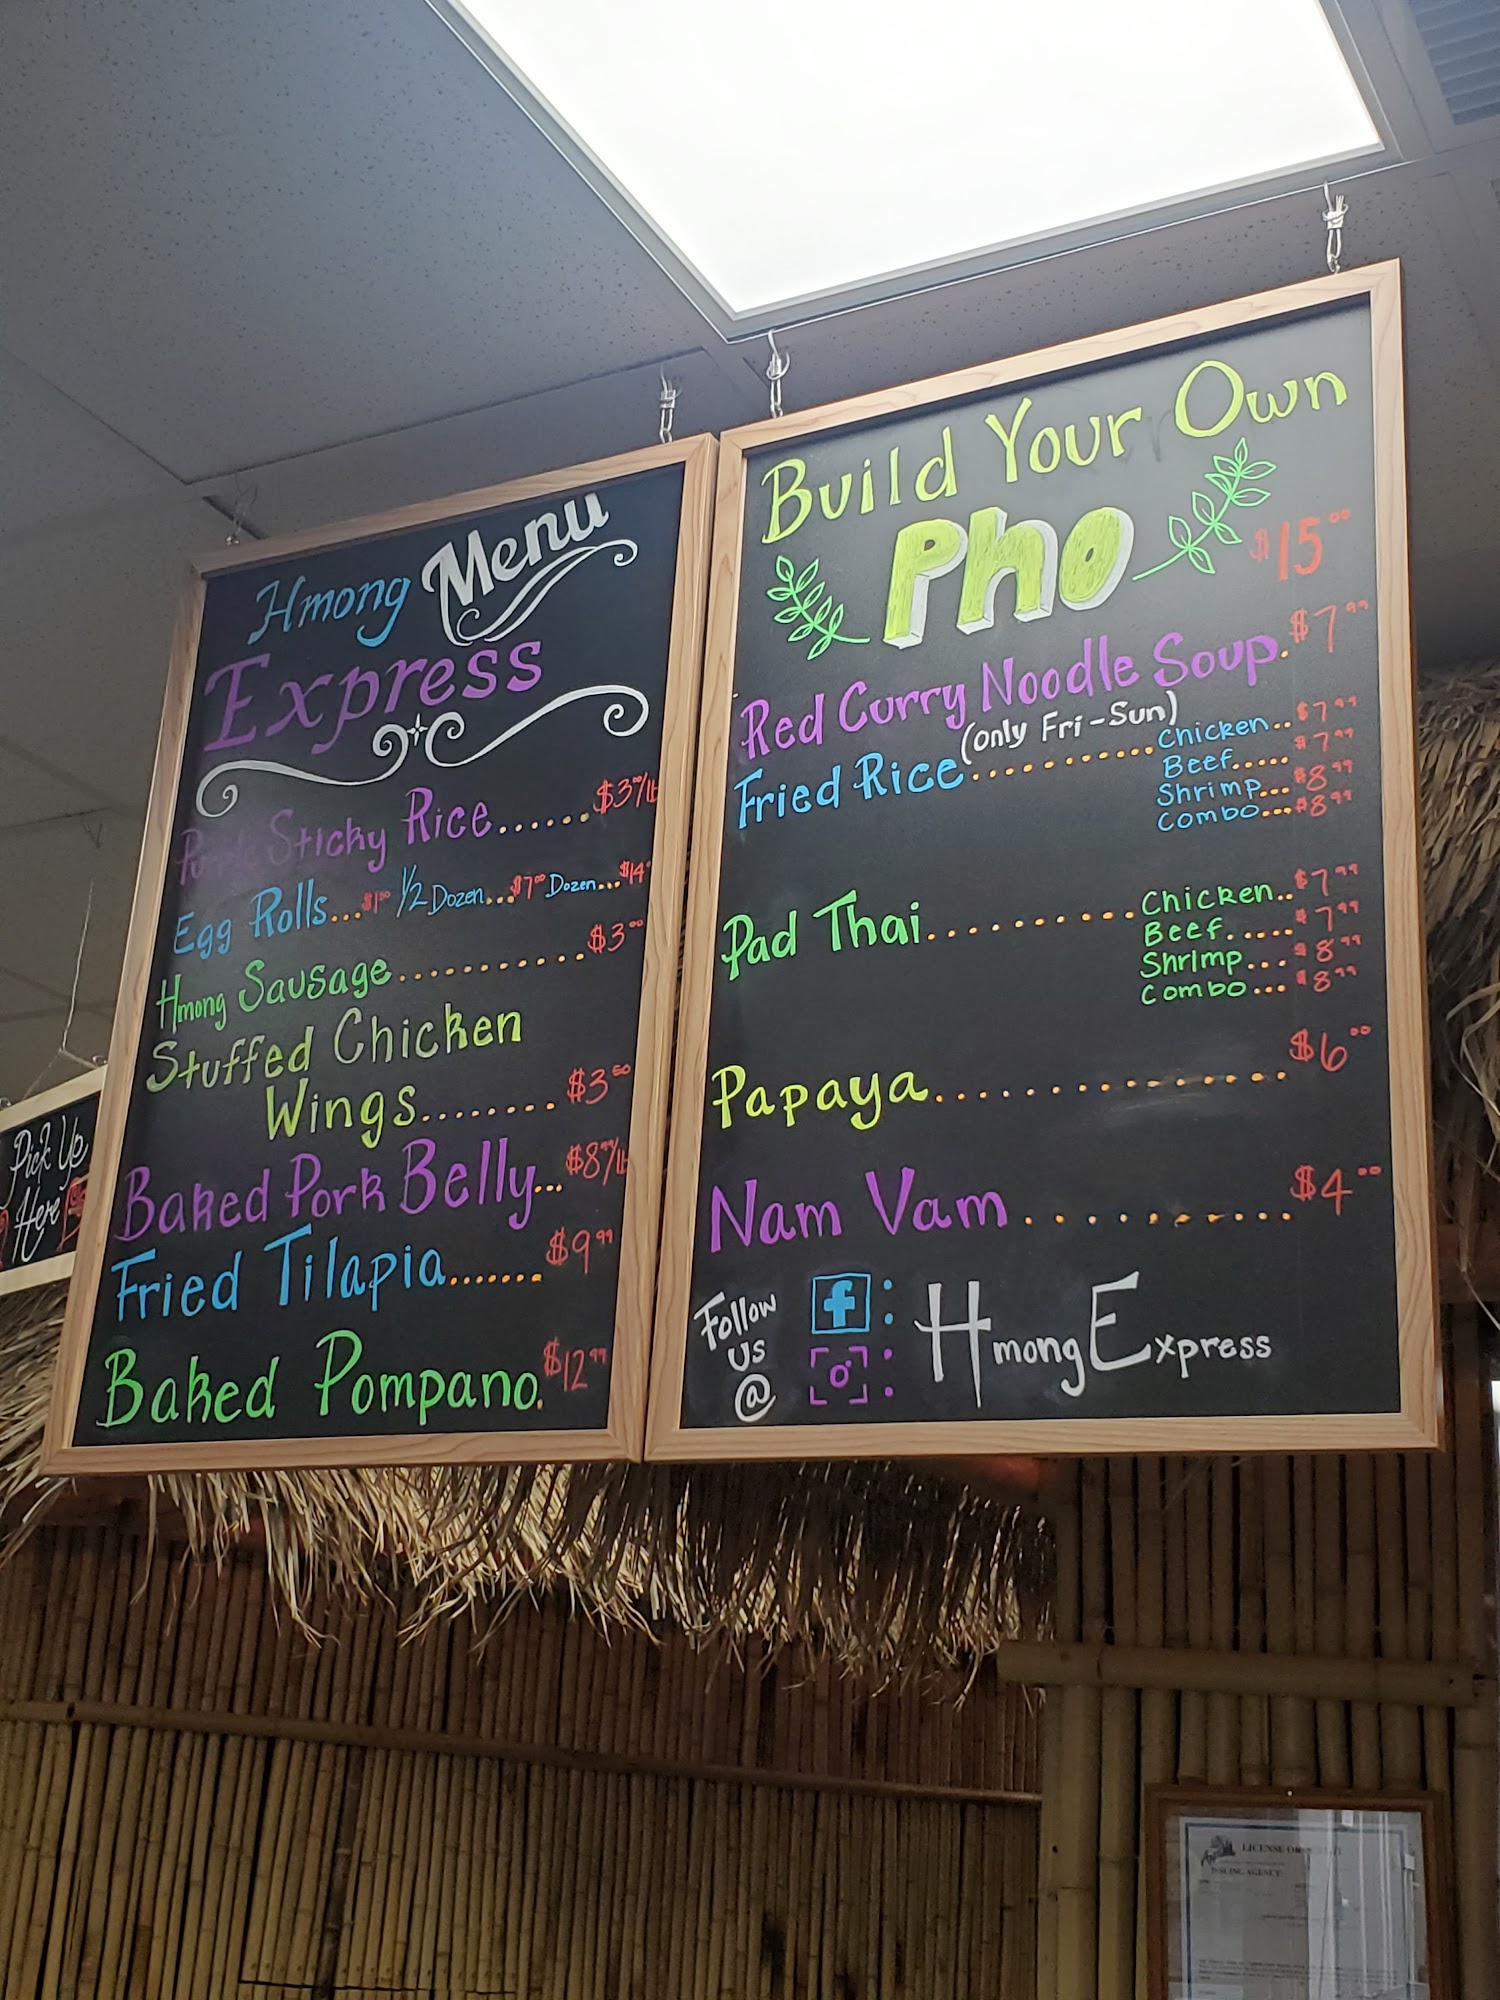 Hmong Menu
Express
Purple Sticky Rice......$3.00/lb
Egg Rolls...$1.50 1/2 Dozen...$7.00 Dozen...$14
Hmong Sausage............$3.00
Stuffed Chicken
Wings........$3.50
Baked Pork Belly...$8.99/lb
Fried Tilapia.......$9.99
Baked Pompano.$12.99
Build Your Own
Pho $15.00
Red Curry Noodle Soup.$7.99
(only Fri-Sun)
Fried Rice..........Chicken..$7.99
Beef.....$7.99
Shrimp...$8.99
Combo...$8.99
Pad Thai..........Chicken..$7.99
Beef.....$7.99
Shrimp...$8.99
Combo...$8.99
Papaya.............$6.00
Nam Vam..........$4.00
Follow
us
@
f : HmongExpress
:
Pick Up
Here
LICENSE
ISSUING AGENCY: